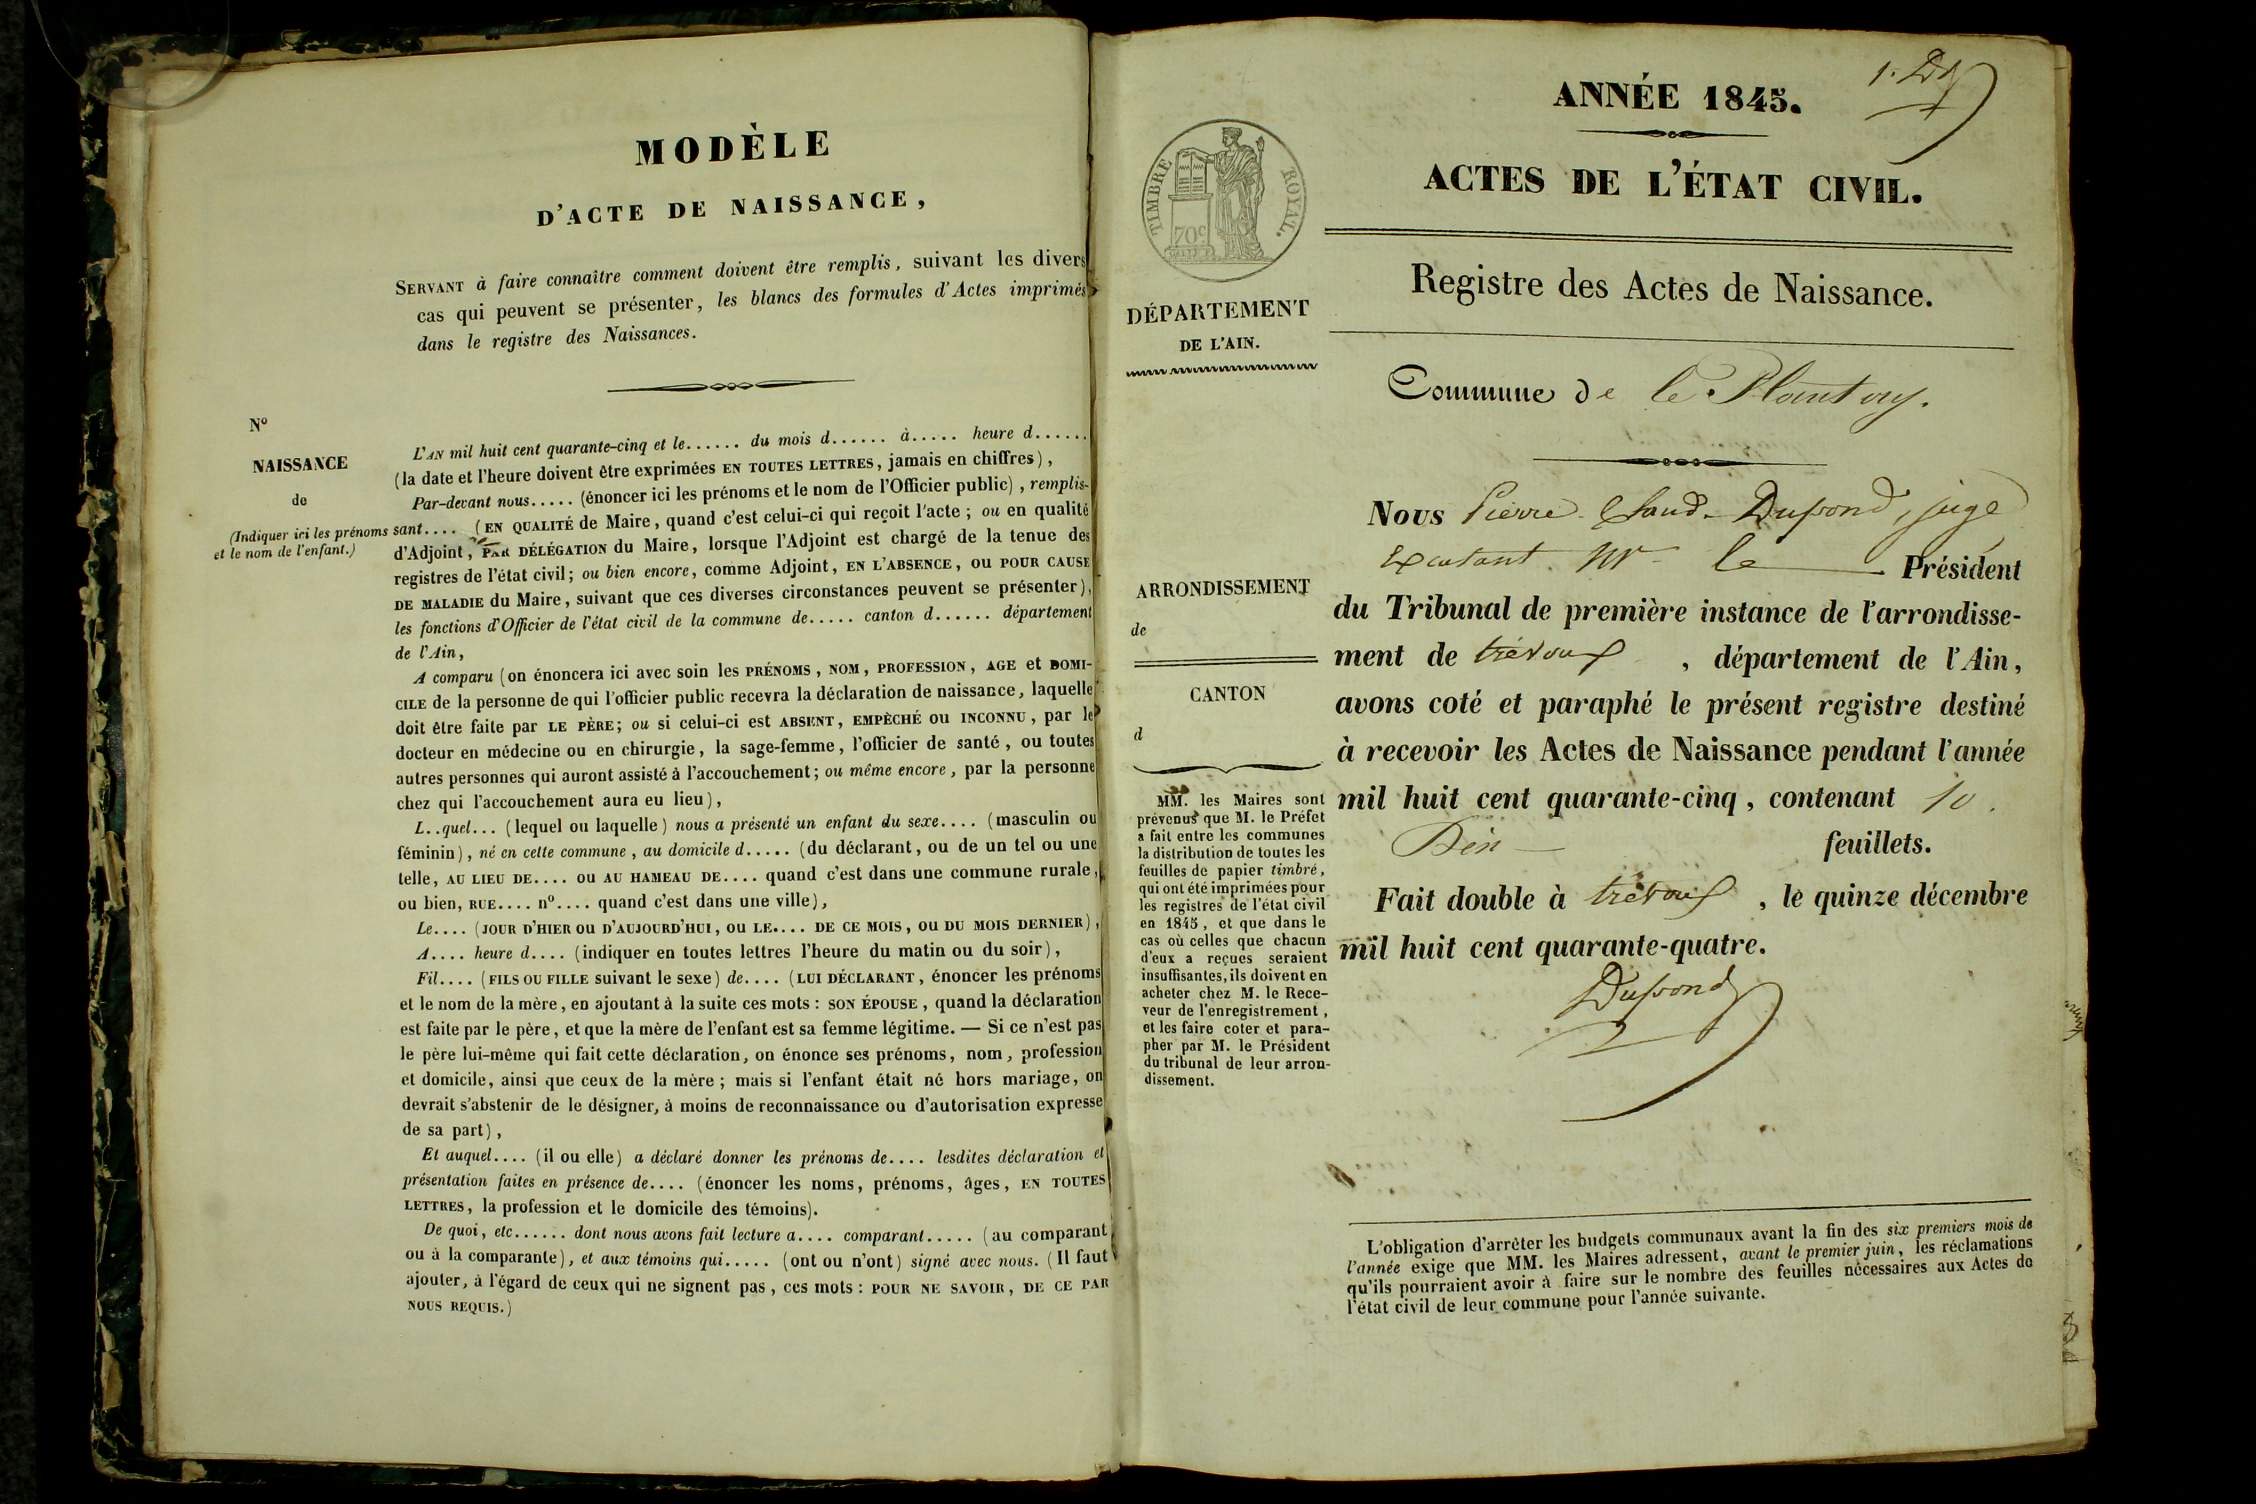 MODÈLE
D'ACTE DE NAISSANCE,
SERVANT à faire connaître comment doivent être remplis, suivant les divers
cas qui peuvent se présenter, les blancs des formules d'Actes imprimés
dans le registre des Naissances.
N°
NAISSANCE
de
(Indiquer ici les prénoms
et le nom de l'enfant.)
L'AN mil huit cent quarante-cinq et le...... du mois d...... à..... heure d......
(la date et l'heure doivent être exprimées EN TOUTES LETTRES, jamais en chiffres),
Par-devant nous..... (énoncer ici les prénoms et le nom de l'Officier public), remplis-
sant.... (EN QUALITÉ de Maire, quand c'est celui-ci qui reçoit l'acte; ou en qualité
d'Adjoint, PAR DÉLÉGATION du Maire, lorsque l'Adjoint est chargé de la tenue des
registres de l'état civil; ou bien encore, comme Adjoint, EN L'ABSENCE, OU POUR CAUSE
DE MALADIE du Maire, suivant que ces diverses circonstances peuvent se présenter),
les fonctions d'Officier de l'état civil de la commune de..... canton d...... département
de l'Ain,
A comparu (on énoncera ici avec soin les PRÉNOMS, NOM, PROFESSION, AGE et DOMI-
CILE de la personne de qui l'officier public recevra la déclaration de naissance, laquelle
doit être faite par LE PÈRE; ou si celui-ci est ABSENT, EMPÊCHÉ ou INCONNU, par le
docteur en médecine ou en chirurgie, la sage-femme, l'officier de santé, ou toutes
autres personnes qui auront assisté à l'accouchement; ou même encore, par la personne
chez qui l'accouchement aura eu lieu),
L..quel... (lequel ou laquelle) nous a présenté un enfant du sexe.... (masculin ou
féminin), né en cette commune, au domicile d..... (du déclarant, ou de un tel ou une
telle, AU LIEU DE.... OU AU HAMEAU DE.... quand c'est dans une commune rurale,
ou bien, RUE.... n°.... quand c'est dans une ville),
Le.... (JOUR D'HIER OU D'AUJOURD'HUI, OU LE.... DE CE MOIS, OU DU MOIS DERNIER),
A.... heure d.... (indiquer en toutes lettres l'heure du matin ou du soir),
Fil.... (FILS OU FILLE suivant le sexe) de.... (LUI DÉCLARANT, énoncer les prénoms
et le nom de la mère, en ajoutant à la suite ces mots: SON ÉPOUSE, quand la déclaration
est faite par le père, et que la mère de l'enfant est sa femme légitime. — Si ce n'est pas
le père lui-même qui fait cette déclaration, on énonce ses prénoms, nom, profession
et domicile, ainsi que ceux de la mère; mais si l'enfant était né hors mariage, on
devrait s'abstenir de le désigner, à moins de reconnaissance ou d'autorisation expresse
de sa part),
Et auquel.... (il ou elle) a déclaré donner les prénoms de.... lesdites déclaration et
présentation faites en présence de.... (énoncer les noms, prénoms, âges, EN TOUTES
LETTRES, la profession et le domicile des témoins).
De quoi, etc...... dont nous avons fait lecture a.... comparant..... (au comparant
ou à la comparante), et aux témoins qui..... (ont ou n'ont) signé avec nous. (Il faut
ajouter, à l'égard de ceux qui ne signent pas, ces mots: POUR NE SAVOIR, DE CE PAR
NOUS REQUIS.)
ANNÉE 1845.
ACTES DE L'ÉTAT CIVIL.
TIMBRE ROYAL.
70c
DÉPARTEMENT
DE L'AIN.
Registre des Actes de Naissance.
Commune de le Plantay.
ARRONDISSEMENT
de
CANTON
d
MM. les Maires sont
prévenus que M. le Préfet
a fait entre les communes
la distribution de toutes les
feuilles de papier timbré,
qui ont été imprimées pour
les registres de l'état civil
en 1845, et que dans le
cas où celles que chacun
d'eux a reçues seraient
insuffisantes, ils doivent en
acheter chez M. le Rece-
veur de l'enregistrement,
et les faire coter et para-
pher par M. le Président
du tribunal de leur arron-
dissement.
Nous Pierre Claud Dupond, juge
Exantant Mr le Président
du Tribunal de première instance de l'arrondisse-
ment de trévoux, département de l'Ain,
avons coté et paraphé le présent registre destiné
à recevoir les Actes de Naissance pendant l'année
mil huit cent quarante-cinq, contenant 10.
Dix feuillets.
Fait double à trévoux, le quinze décembre
mil huit cent quarante-quatre.
Dupond
L'obligation d'arrêter les budgets communaux avant la fin des six premiers mois de
l'année exige que MM. les Maires adressent, avant le premier juin, les réclamations
qu'ils pourraient avoir à faire sur le nombre des feuilles nécessaires aux Actes de
l'état civil de leur commune pour l'année suivante.